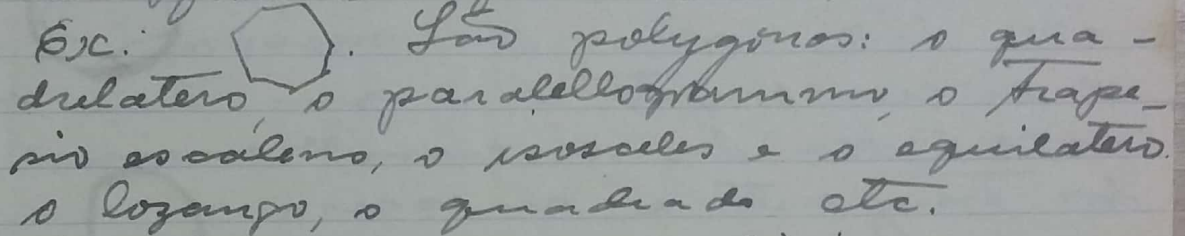 Ex.: . São polygonos: o qua-
drilatero, o paralellogrammo, o trape-
sio escaleno, o isosceles e o equilatero.
o lozango, o quadrado etc.